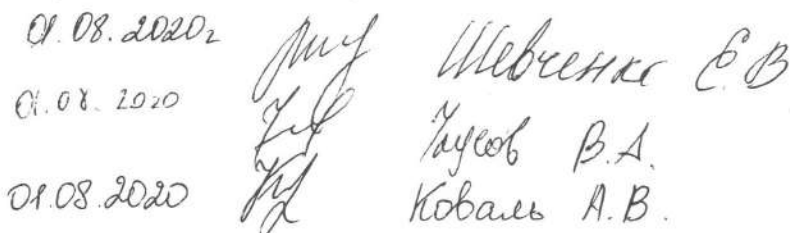 01.08.2020г Шевченко Е.В
01.08.2020 В.А.
01.08.2020 Коваль А.В.